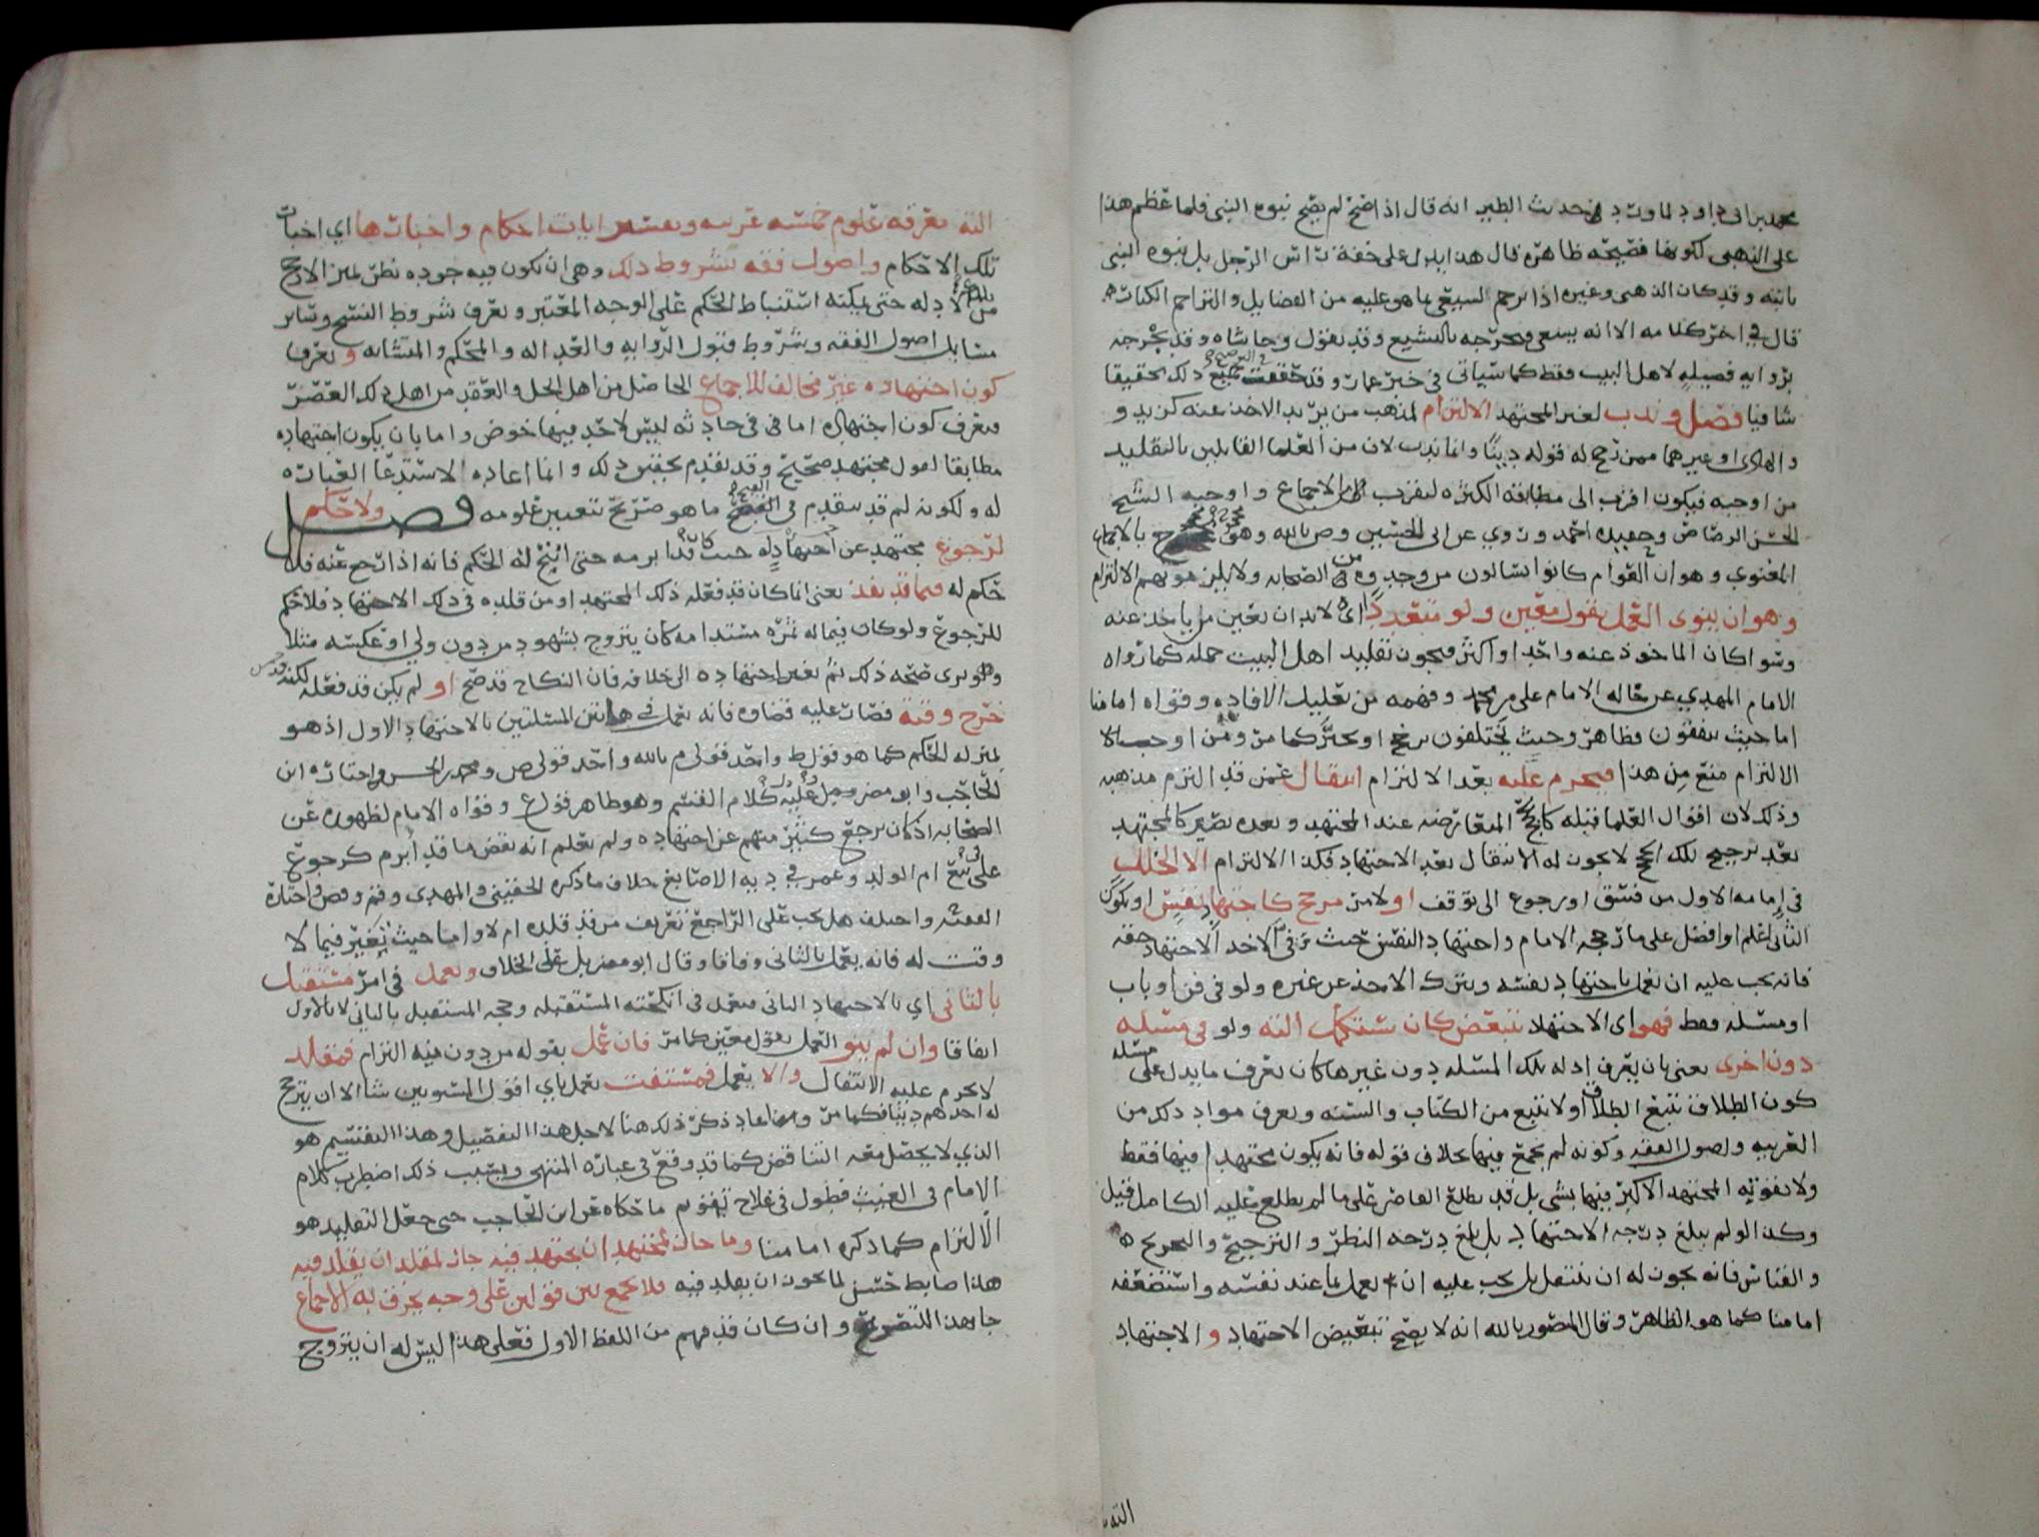 محمد بن ابي داود لما ورد في حديث الطير انه قال اذا صح لم يصح نبوه النبي فلما عظم هذا
على الذهبي لكونها فضيحه ظاهره قال هذا يدل على خفة راس الرجل بل نبوه النبي
ثابته وقد كان الذهبي وغيره اذا ترجم الشيعي بما هو عليه من الفضايل والتراجم الكبار
قال في اخر كلامه الا انه شيعي فيجرحه بالتشيع وقد يقول وحاشاه وقد يجرحه
بروايه فضيله لاهل البيت فقط كما سياتي في خبر عمار وقد حققت ذلك تحقيقا
شافيا فصل وندب لغير المجتهد الالتزام لمذهب من يريد الاخذ عنه كزيد و
والهادي او غيرهما ممن ترجح له قوله دينا وانما ندب لان من العلما القايلين بالتقليد
من اوجبه فيكون اقرب الى مطابقه الكثره ليقرب الى الاجماع واوجبه الشيخ
الحسن الرصاص وحفيده احمد وروي عن ابي الحسين وص بالله وهو بالاجماع
المعنوي وهو ان العوام كانوا يسالون من وجدوه من الصحابه ولا يلزمونهم الالتزام
وهو ان ينوي العمل بقول معين ولو متعددا اي لا بد ان يعين من ياخذ عنه
وسوا كان الماخوذ عنه واحدا او اكثر فيجوز تقليد اهل البيت جمله كما رواه
الامام المهدي عن خاله الامام علي بن محمد وفهمه من تعليل الافاده وقواه امامنا
اما حيث يتفقون فظاهر وحيث يختلفون يرجح او يخير كما مر ومن اوجب
الالتزام منع من هذا فيحرم عليه بعد الالتزام انتقال عمن قد التزم مذهبه
وذلك لان اقوال العلما قبله كالحجج المتعارضه عند المجتهد وبعده يصير كالمجتهد
بعد ترجيح تلك الحجج لا يجوز له الانتقال بعد الاجتهاد فكذا الالتزام الا لخلل
في امامه الاول من فسق او رجوع الى توقف او لامر مرجح كاجتهاد نفس او يكون
الثاني اعلم او افضل على ما رجحه الامام واجتهاد النفس حيث ترقى الاخذ الاجتهاد حقه
فانه يجب عليه ان يعمل باجتهاد نفسه ويترك الاخذ عن غيره ولو في فن او باب
او مسئله فقط فهو اي الاجتهاد يتبعض كان يستكمل الته ولو في مسئله
دون اخرى يعني بان يعرف ادله تلك المسئله دون غيرها كان يعرف ما يدل على مسئله
كون الطلاق يتبع الطلاق او لا يتبع من الكتاب والسنه ويعرف مواد ذلك من
العربيه واصول الفقه وكونه لم يجمع فيها بخلاف قوله فانه يكون مجتهدا فيها فقط
ولا يفوته المجتهد الاكبر فيها بشي بل قد يطلع القاصر على ما لم يطلع عليه الكامل قيل
وكذا لو لم يبلغ درجه الاجتهاد بل بلغ درجه النظر والترجيح والتخريج
والقياس فانه يجوز له ان ينتقل بل يجب عليه ان يعمل بما عند نفسه واستضعفه
امامنا كما هو الظاهر وقال المنصور بالله انه لا يصح تبعيض الاجتهاد والاجتهاد
الته
الته معرفه علوم خمسه عربيه وتفسير ايات احكام واخبارها اي اخبار
تلك الاحكام واصول فقه بشروط ذلك وهي ان يكون فيه جوده نظر ليميز الارجح
من الادله حتى يمكنه استنباط الحكم على الوجه المعتبر ويعرف شروط النسخ وساير
مسايل اصول الفقه وشروط قبول الروايه والعداله والمحكم والمتشابه ويعرف
كون اجتهاده غير مخالف للاجماع الحاصل من اهل الحل والعقد من اهل ذلك العصر
فيعرف كون اجتهاده اما في حادثه ليس لاحد فيها خوض واما بان يكون اجتهاده
مطابقا لقول مجتهد صحيح وقد تقدم تحقيق ذلك وانما اعاده لاستدعا العباره
له ولكونه لم قد يتقدم في ما هو صريح بتعيين علومه فصل ولا حكم
لرجوع مجتهد عن اجتهاد له حيث كان قد ابرمه حتى انبرم له الحكم فانه اذا رجع عنه فلا
حكم له فيما قد نفذ يعني انما كان قد فعله ذلك المجتهد او من قلده في ذلك الاجتهاد فلا حكم
للرجوع ولو كان فيما له ثمره مستدامه كان يتزوج بشهود من دون ولي او عكسه مثلا
وهو يرى صحه ذلك ثم تغير اجتهاده الى خلافه فان النكاح قد صح او لم يكن قد فعله لكنه قد
خرج وقته فصار عليه قضاوه فانه يعمل في هاتين المسئلتين بالاجتهاد الاول اذ هو
بمنزله الحكم كما هو قول ط واحد قولي م بالله واحد قولي ص ومحمد بن الحسن واختاره ابن
الحاجب وابو مضر وحمل عليه كلام القسم وهو ظاهر قول ع وقواه الامام لظهوره عن
الصحابه اذ كان يرجع كثير منهم عن اجتهاده ولم نعلم انه نقض ما قد ابرم كرجوع
علي في بيع ام الولد وعمر في ديه الاصابع خلاف ما ذكره الحقيني والمهدي واختاره
الفقيه واختلف هل يجب على الراجع تعريف من قد قلده ام لا واما حيث تغير فيما لا
وقت له فانه يعمل بالثاني وفاقا وقال ابو مضر بل على الخلاف ويعمل في امر مستقبل
بالثاني اي بالاجتهاد الثاني فيعمل في انكحته المستقبله وحجه المستقبل بالثاني لا بالاول
اتفاقا وان لم ينو العمل بقول معين كما مر فان عمل بقوله من دون نيه التزام فمقلد
لا يحرم عليه الانتقال والا يعمل فمستفت يعمل باي اقوال المفتيين شا الا ان يترجح
له احدهم دينا فكما مر وانما اعاد ذكر ذلك هنا لاجل هذا التفصيل وهذا التقسيم هو
الذي لا يحصل معه التناقض كما قد وقع في عباره المنتهى وبسبب ذلك اضطرب كلام
الامام في الغيث فطول في علاج تقويم ما حكاه عن ابن الحاجب حتى جعل التقليد هو
الالتزام كما ذكره امامنا وما جاز لمجتهد ان يجتهد فيه جاز لمقلد ان يقلد فيه
هذا ضابط حسن لما يجوز ان يقلد فيه فلا يجمع بين قولين على وجه يخرق به الاجماع
جا بهذا للتصريح وان كان قد فهم من اللفظ الاول فعلى هذا ليس له ان يتزوج